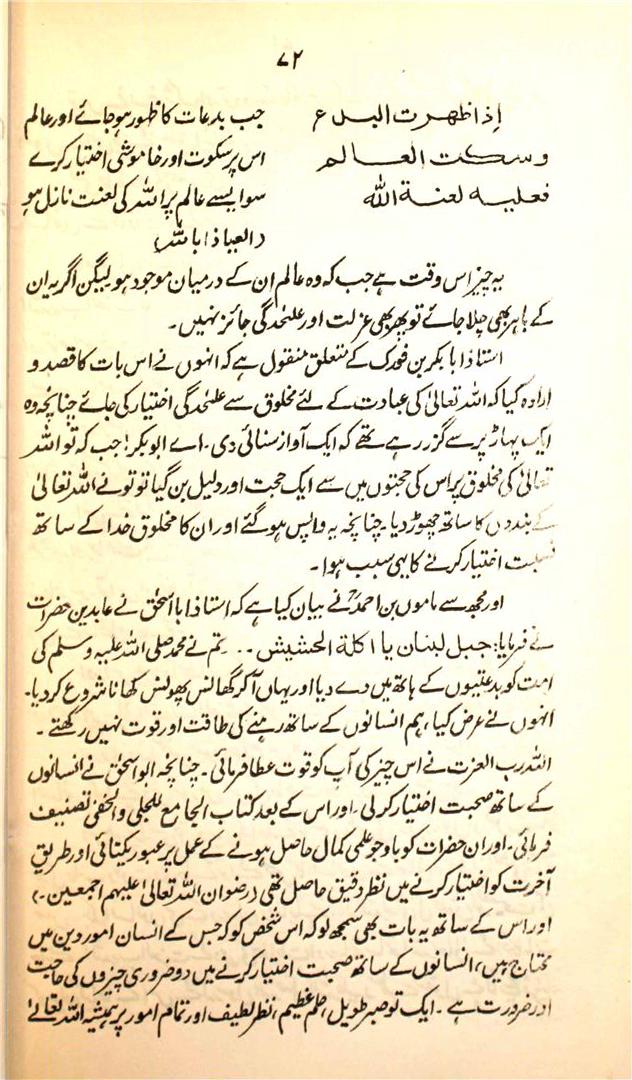 ۷۲
إذا ظهرت البدع
وسكت العالم
فعليه لعنة الله
جب بدعات کا ظہور ہو جائے اور عالم
اس پر سکوت اور خاموشی اختیار کرے
سو ایسے عالم پر اللہ کی لعنت نازل ہو
(العیاذ باللہ)
یہ چیز اس وقت ہے جب کہ وہ عالم ان کے درمیان موجود ہو لیکن اگر یہ ان
کے باہر بھی چلا جائے تو پھر بھی عزلت اور علٰحدگی جائز نہیں۔
استاذ ابابکر بن فورک کے متعلق منقول ہے کہ انہوں نے اس بات کا قصد و
ارادہ کیا کہ اللہ تعالیٰ کی عبادت کے لئے مخلوق سے علٰحدگی اختیار کی جائے چنانچہ وہ
ایک پہاڑ پر سے گزر رہے تھے کہ ایک آواز سنائی دی۔ اے ابوبکر! جب کہ تو اللہ
تعالیٰ کی مخلوق پر اس کی حجتوں میں سے ایک حجت اور دلیل بن گیا تو تو نے اللہ تعالیٰ
کے بندوں کا ساتھ چھوڑ دیا۔ چنانچہ یہ واپس ہو گئے اور ان کا مخلوق خدا کے ساتھ
صحبت اختیار کرنے کا یہی سبب ہوا۔
اور مجھ سے ماموں بن احمدؒ نے بیان کیا ہے کہ استاذ ابا اسحٰق نے عابدین حضرات
سے فرمایا: جبل لبنان یا اکلۃ الحشیش .. تم نے محمد صلی اللہ علیہ وسلم کی
امت کو بدعتیوں کے ہاتھ میں دے دیا اور یہاں آکر گھانس پھونس کھانا شروع کر دیا۔
انہوں نے عرض کیا، ہم انسانوں کے ساتھ رہنے کی طاقت اور قوت نہیں رکھتے۔
اللہ رب العزت نے اس چیز کی آپ کو قوت عطا فرمائی۔ چنانچہ ابو اسحٰق نے انسانوں
کے ساتھ صحبت اختیار کر لی۔ اور اس کے بعد کتاب الجامع للجلی والخفی تصنیف
فرمائی۔ اور ان حضرات کو باوجود علمی کمال حاصل ہونے کے عمل پر عبور یکتائی اور طریقِ
آخرت کو اختیار کرنے میں نظر دقیق حاصل تھی (رضوان اللہ تعالیٰ علیہم اجمعین۔)
اور اس کے ساتھ یہ بات بھی سمجھ لو کہ اس شخص کو کہ جس کے انسان امور دین میں
محتاج ہیں، انسانوں کے ساتھ صحبت اختیار کرنے میں دو ضروری چیزوں کی حاجت
اور ضرورت ہے۔ ایک تو صبر طویل، حلم عظیم، نظر لطیف اور تمام امور پر ہمیشہ اللہ تعالےٰ